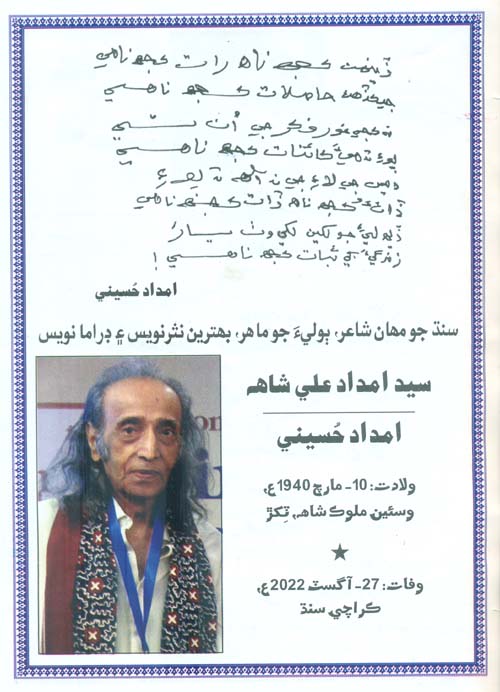 ڏينهن ڪجهه ناهہ رات ڪجهه ناهي
جيڪڏهن حاصلات ڪجهه ناهي
ڪجي غور فڪر جي اُن تي
پوءِ تہ هيءَ ڪائنات ڪجهه ناهي
ڏيس جي لاءِ جي نہ آهہ تہ پوءِ
ذات ڪجهه ناهہ ذات ڪجهه ناهي
جو لکين لکي وٺ يار
زندگيءَ جي ثبات ڪجهه ناهي!
امداد حُسيني
سنڌ جو مهان شاعر، ٻوليءَ جو ماهر، بهترين نثرنويس ۽ ڊراما نويس
سيد امداد علي شاهہ
امداد حُسيني
ولادت: 10- مارچ 1940ع،
وسئين ملوڪ شاهہ، ٽِکڙ
وفات: 27- آگسٽ 2022ع،
ڪراچي سنڌ